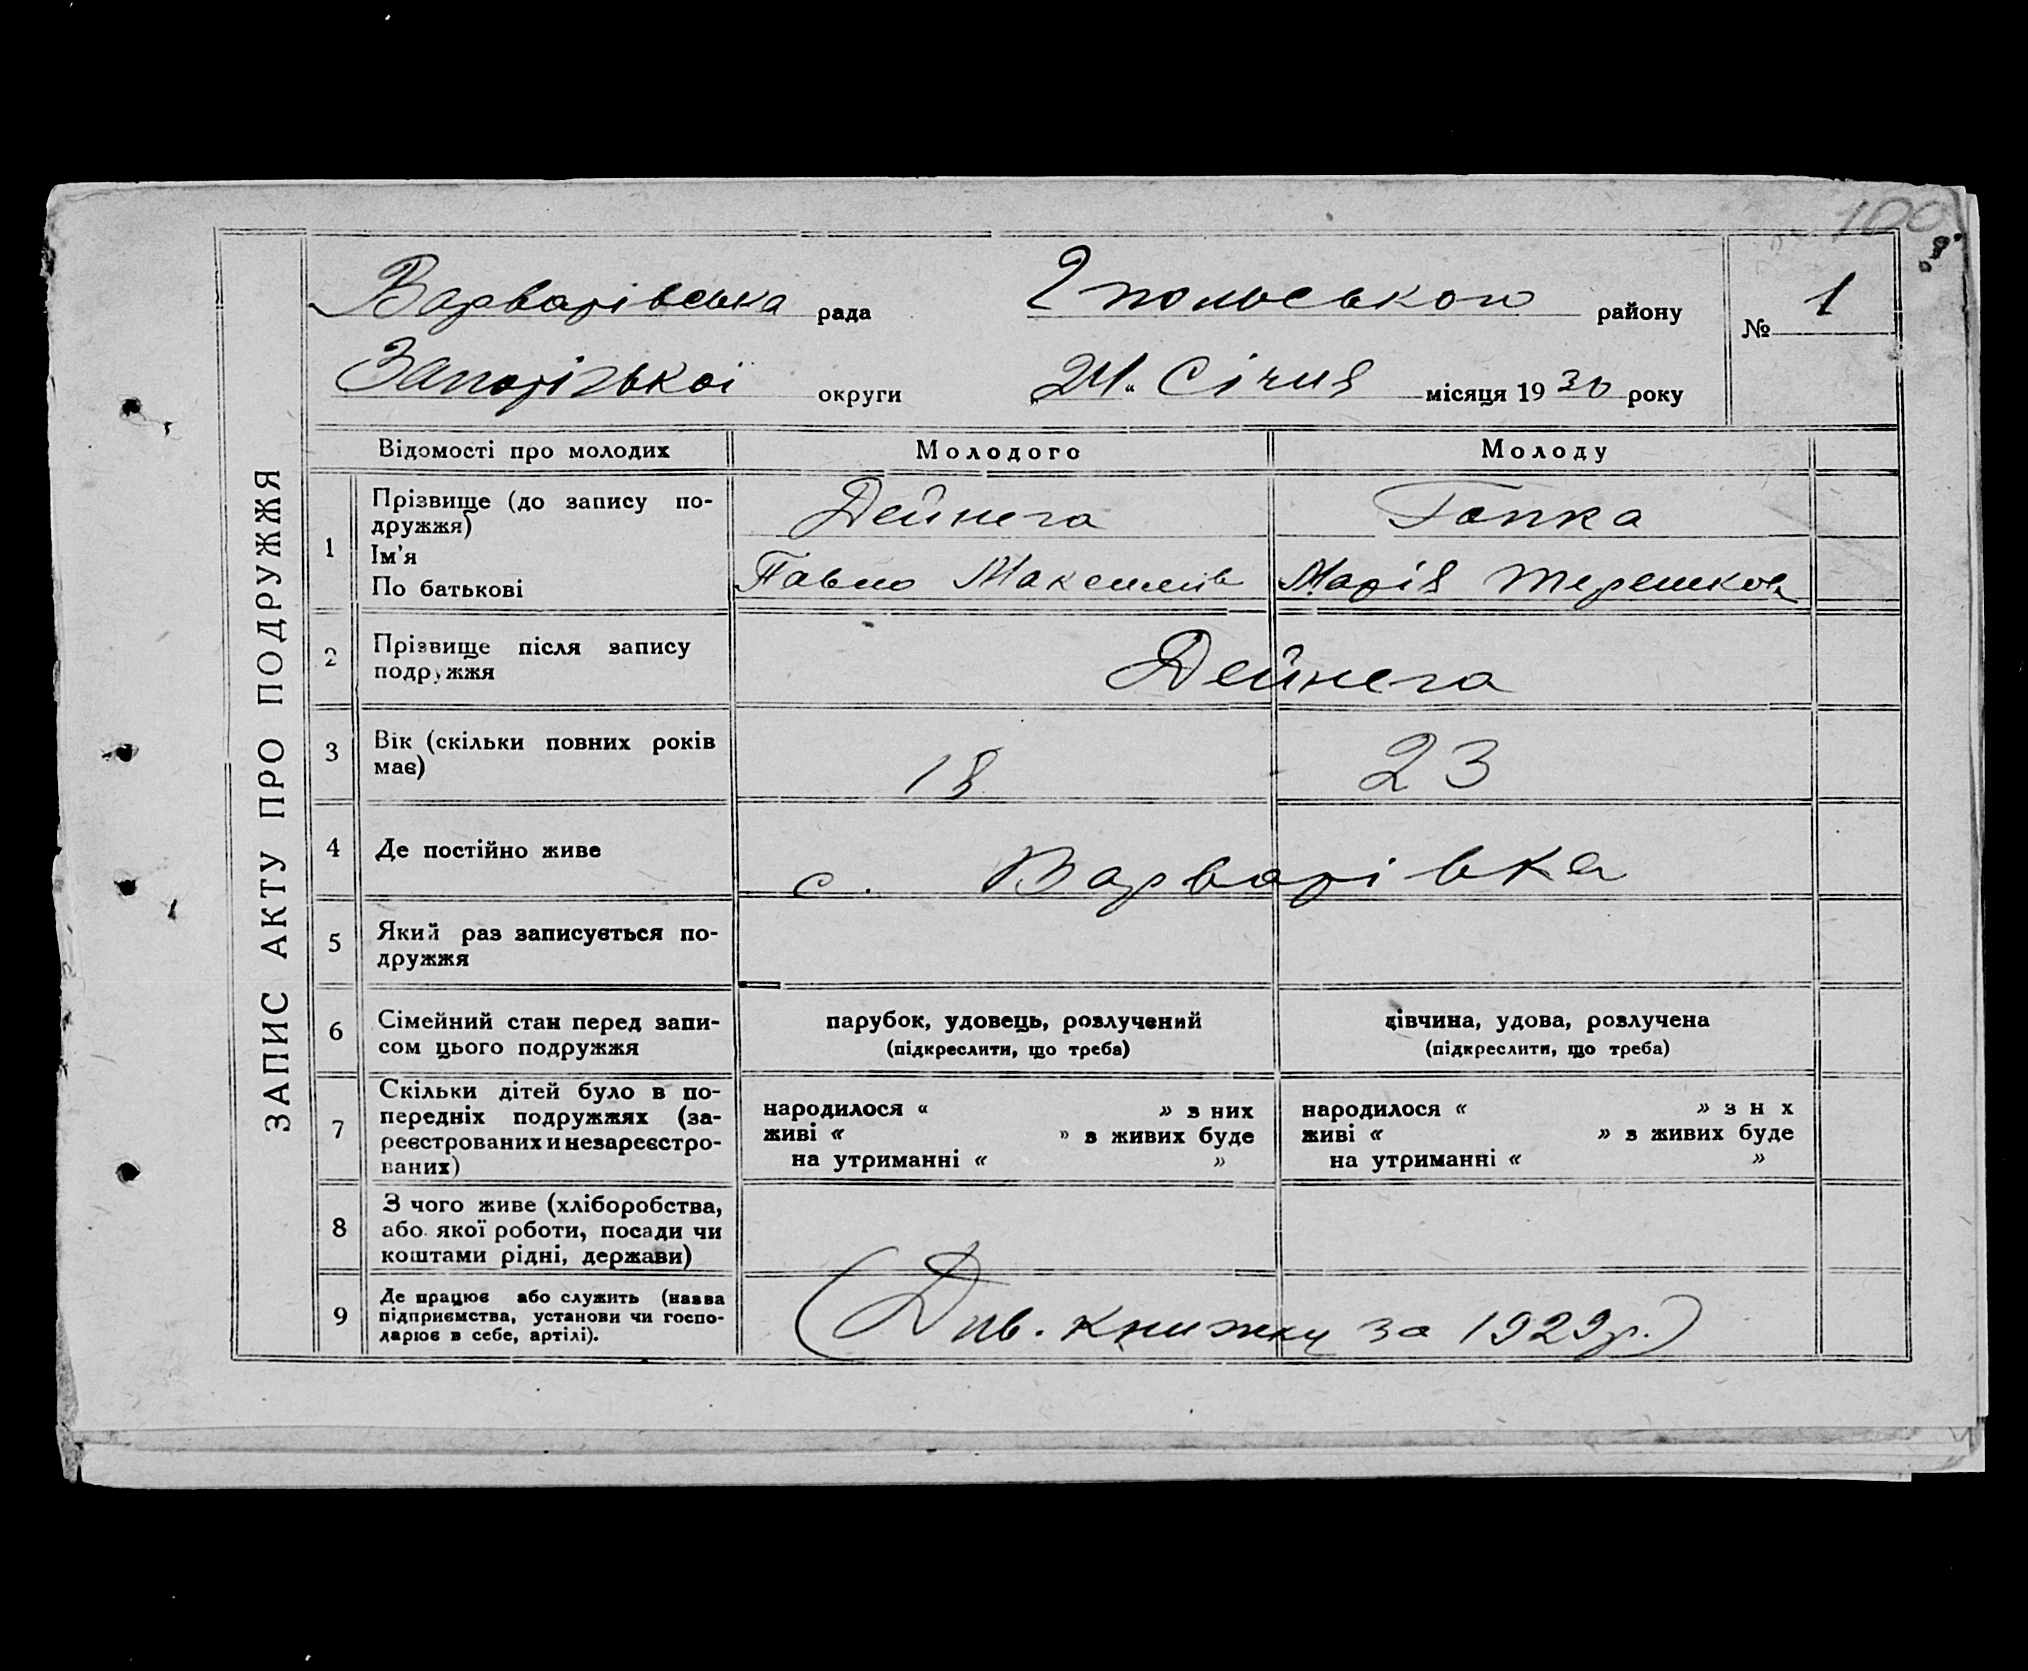 100
Варварівська рада Гпольського району
№ 1
Запорізької округи „24“ Січня місяця 1930 року
ЗАПИС АКТУ ПРО ПОДРУЖЖЯ
Відомості про молодих Молодого Молоду
1 Прізвище (до запису по-
дружжя) Дейнега Гопка
Ім'я
По батькові Павло Максимів Марія Терешков
2 Прізвище після запису
подружжя Дейнега
3 Вік (скільки повних років
має) 18 23
4 Де постійно живе с. Варварівка
5 Який раз записується по-
дружжя
6 Сімейний стан перед запи-
сом цього подружжя
парубок, удовець, розлучений
(підкреслити, що треба)
дівчина, удова, розлучена
(підкреслити, що треба)
7 Скільки дітей було в по-
передніх подружжях (за-
реєстрованих и незареєстро-
ваних)
народилося « » з них
живі « » з живих буде
на утриманні « »
народилося « » з н х
живі « » з живих буде
на утриманні « »
8 З чого живе (хліборобства,
або якої роботи, посади чи
коштами рідні, держави)
9 Де працює або служить (назва
підприємства, установи чи госпо-
дарює в себе, артілі).
(Див. книжку за 1929 р.)